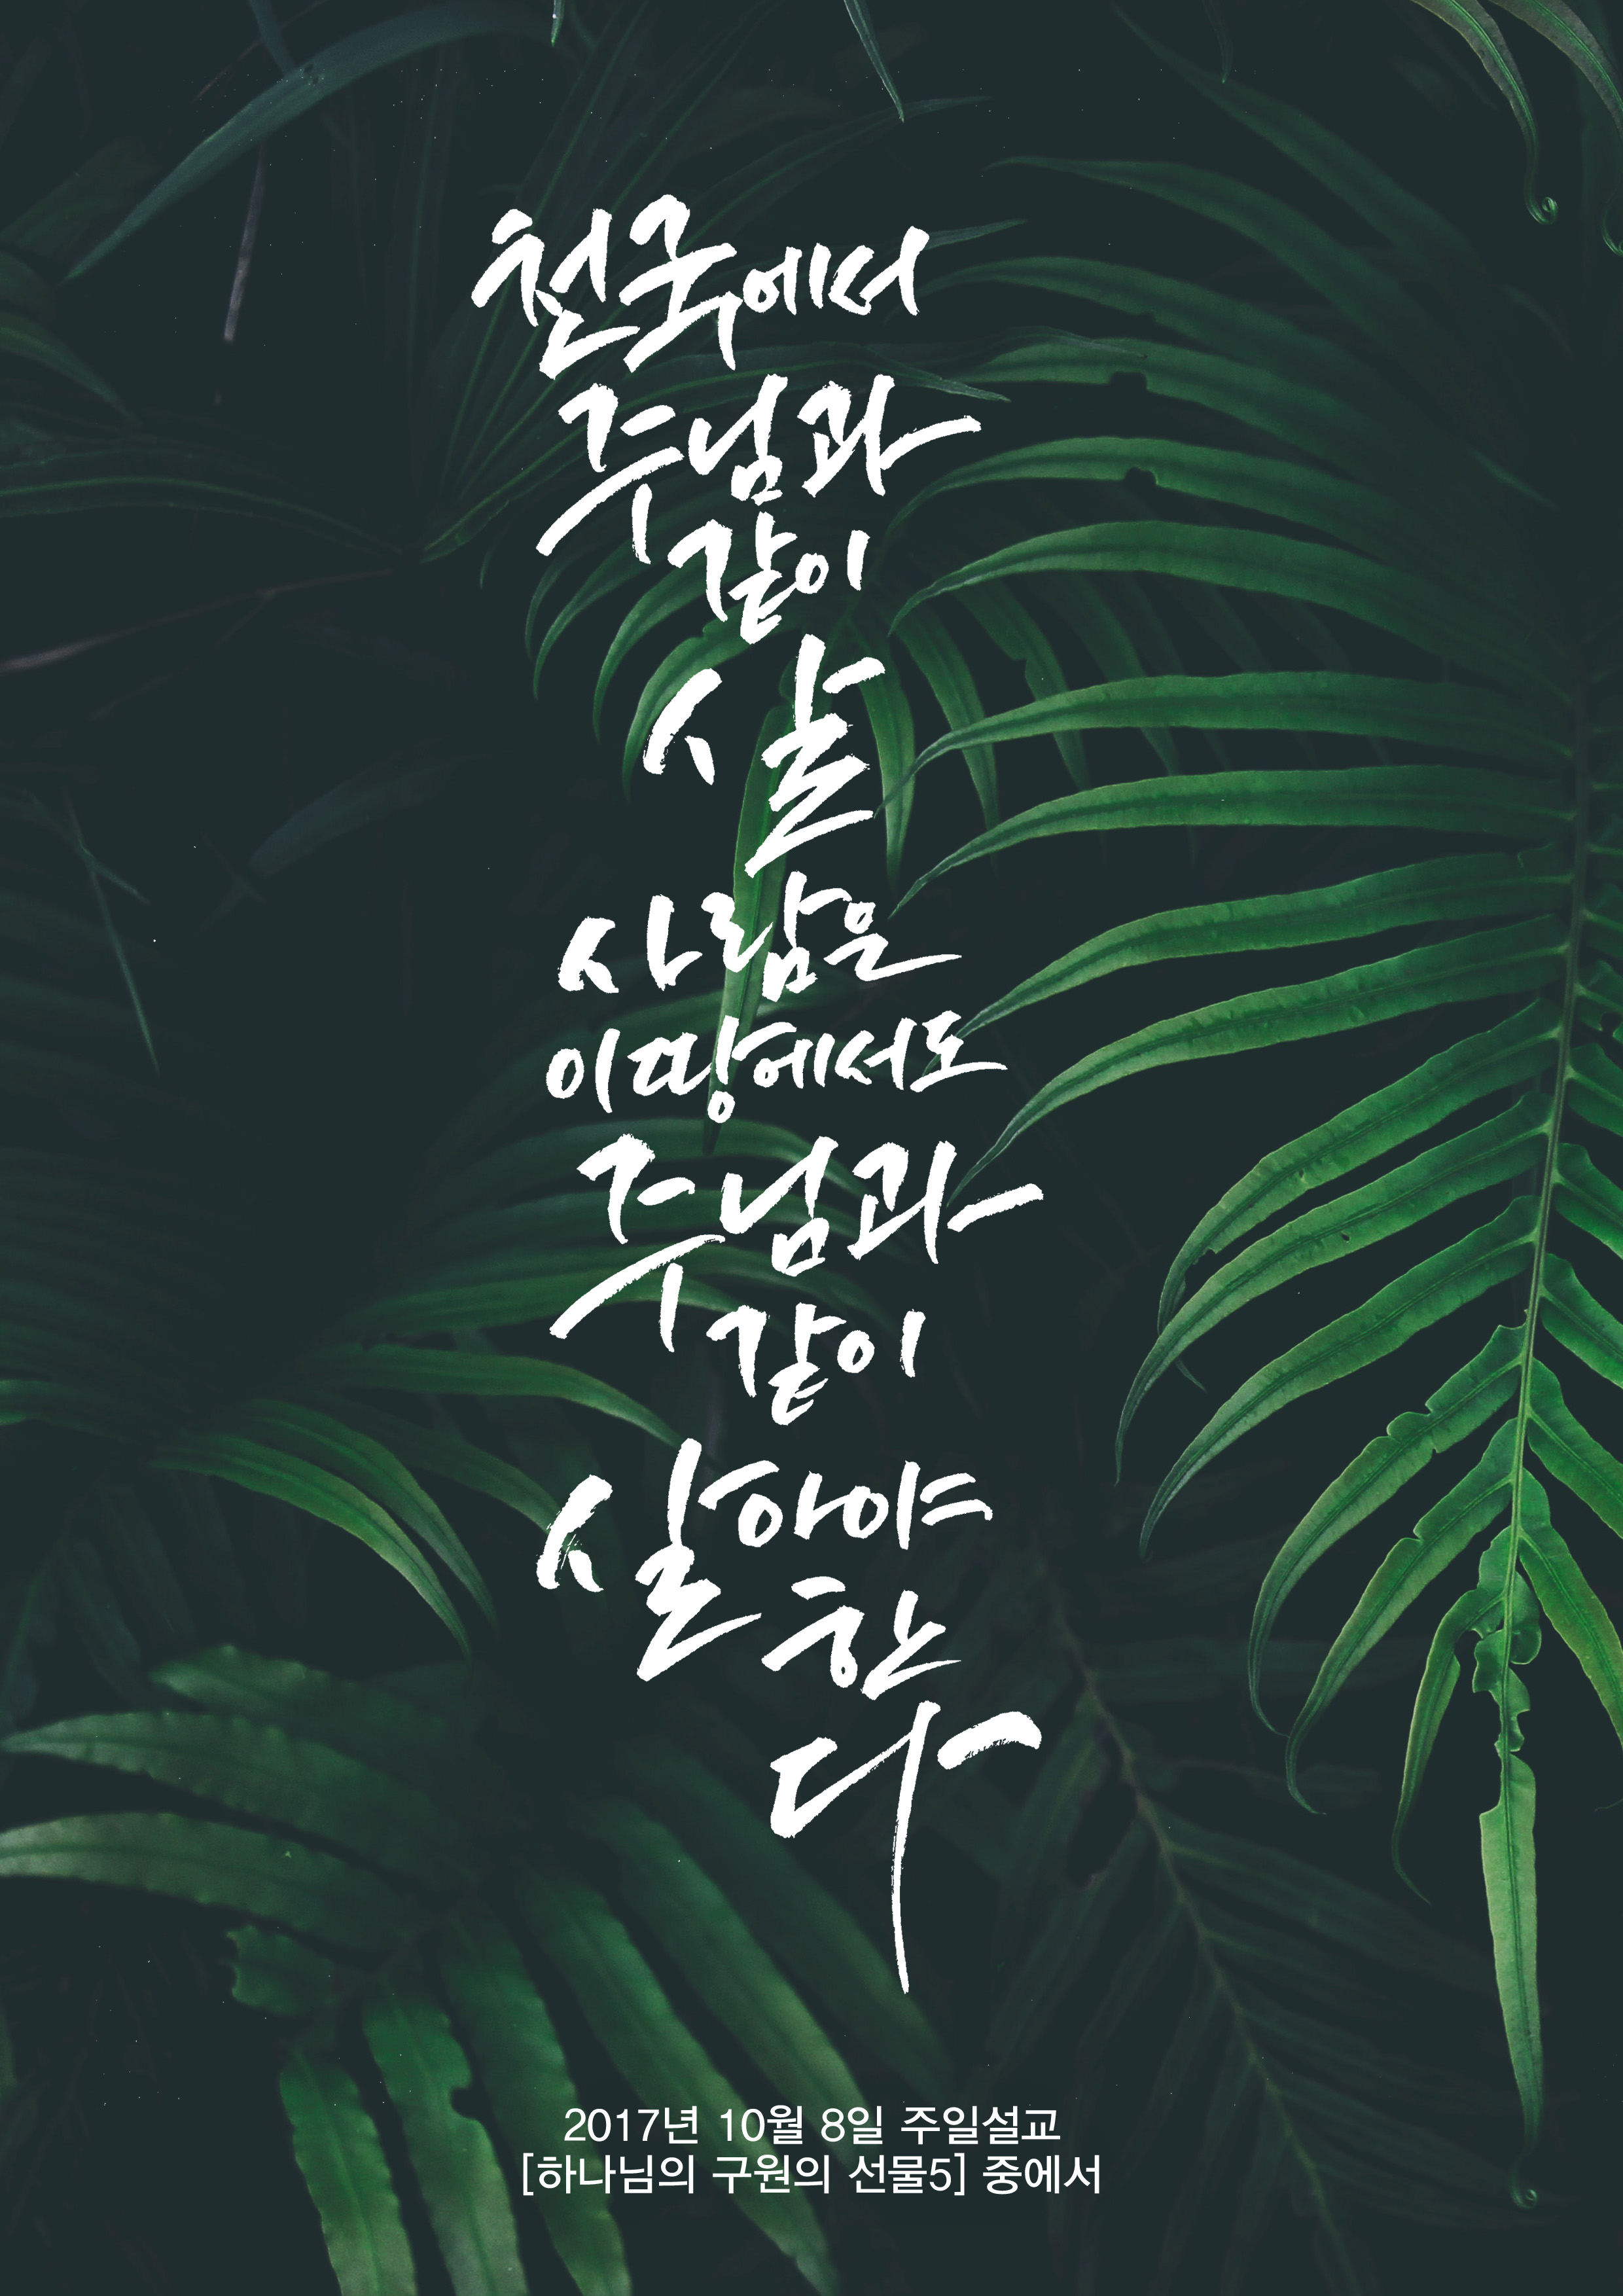 천국에서
주님과
같이
살
사람은
이 땅에서도
주님과
같이
살아야
한
다
2017년 10월 8일 주일설교
[하나님의 구원의 선물5] 중에서